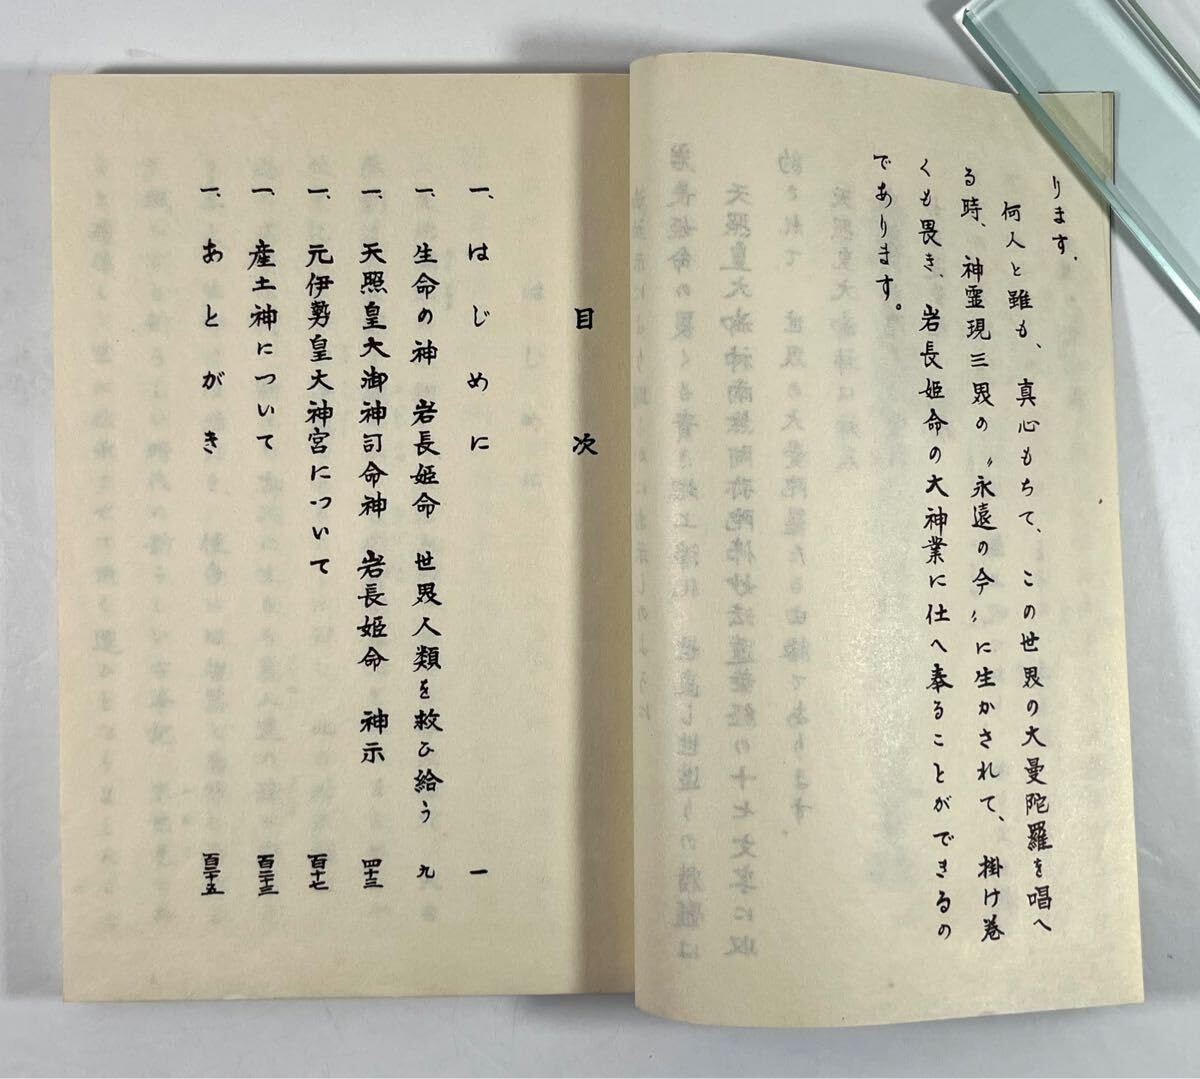 ります。
何人と雖も、真心もちて、この世界の大曼陀羅を唱へ
る時、神霊現三界の〝永遠の今〟に生かされて、掛け巻
くも畏き、岩長姫命の大神業に仕へ奉ることができるの
であります。
目次
一、はじめに 一
一、生命の神 岩長姫命 世界人類を救ひ給う 九
一、天照皇大御神司命神 岩長姫命 神示 四十三
一、元伊勢皇大神宮について 百十七
一、産土神について 百二十三
一、あとがき 百二十五